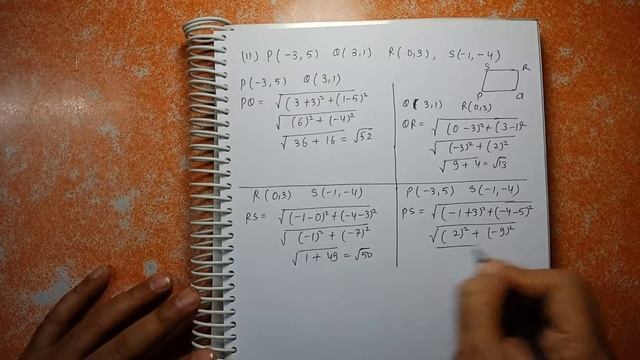 (11) P(-3,5) Q(3,1) R(0,3), S(-1,-4)
S R
P Q
P(-3,5) Q(3,1)
PQ = √(3+3)²+(1-5)²
√(6)²+(-4)²
√36+16 = √52
Q(3,1) R(0,3)
QR = √(0-3)²+(3-1)²
√(-3)²+(2)²
√9+4 = √13
R(0,3) S(-1,-4)
RS = √(-1-0)²+(-4-3)²
√(-1)²+(-7)²
√1+49 = √50
P(-3,5) S(-1,-4)
PS = √(-1+3)²+(-4-5)²
√(2)²+(-9)²